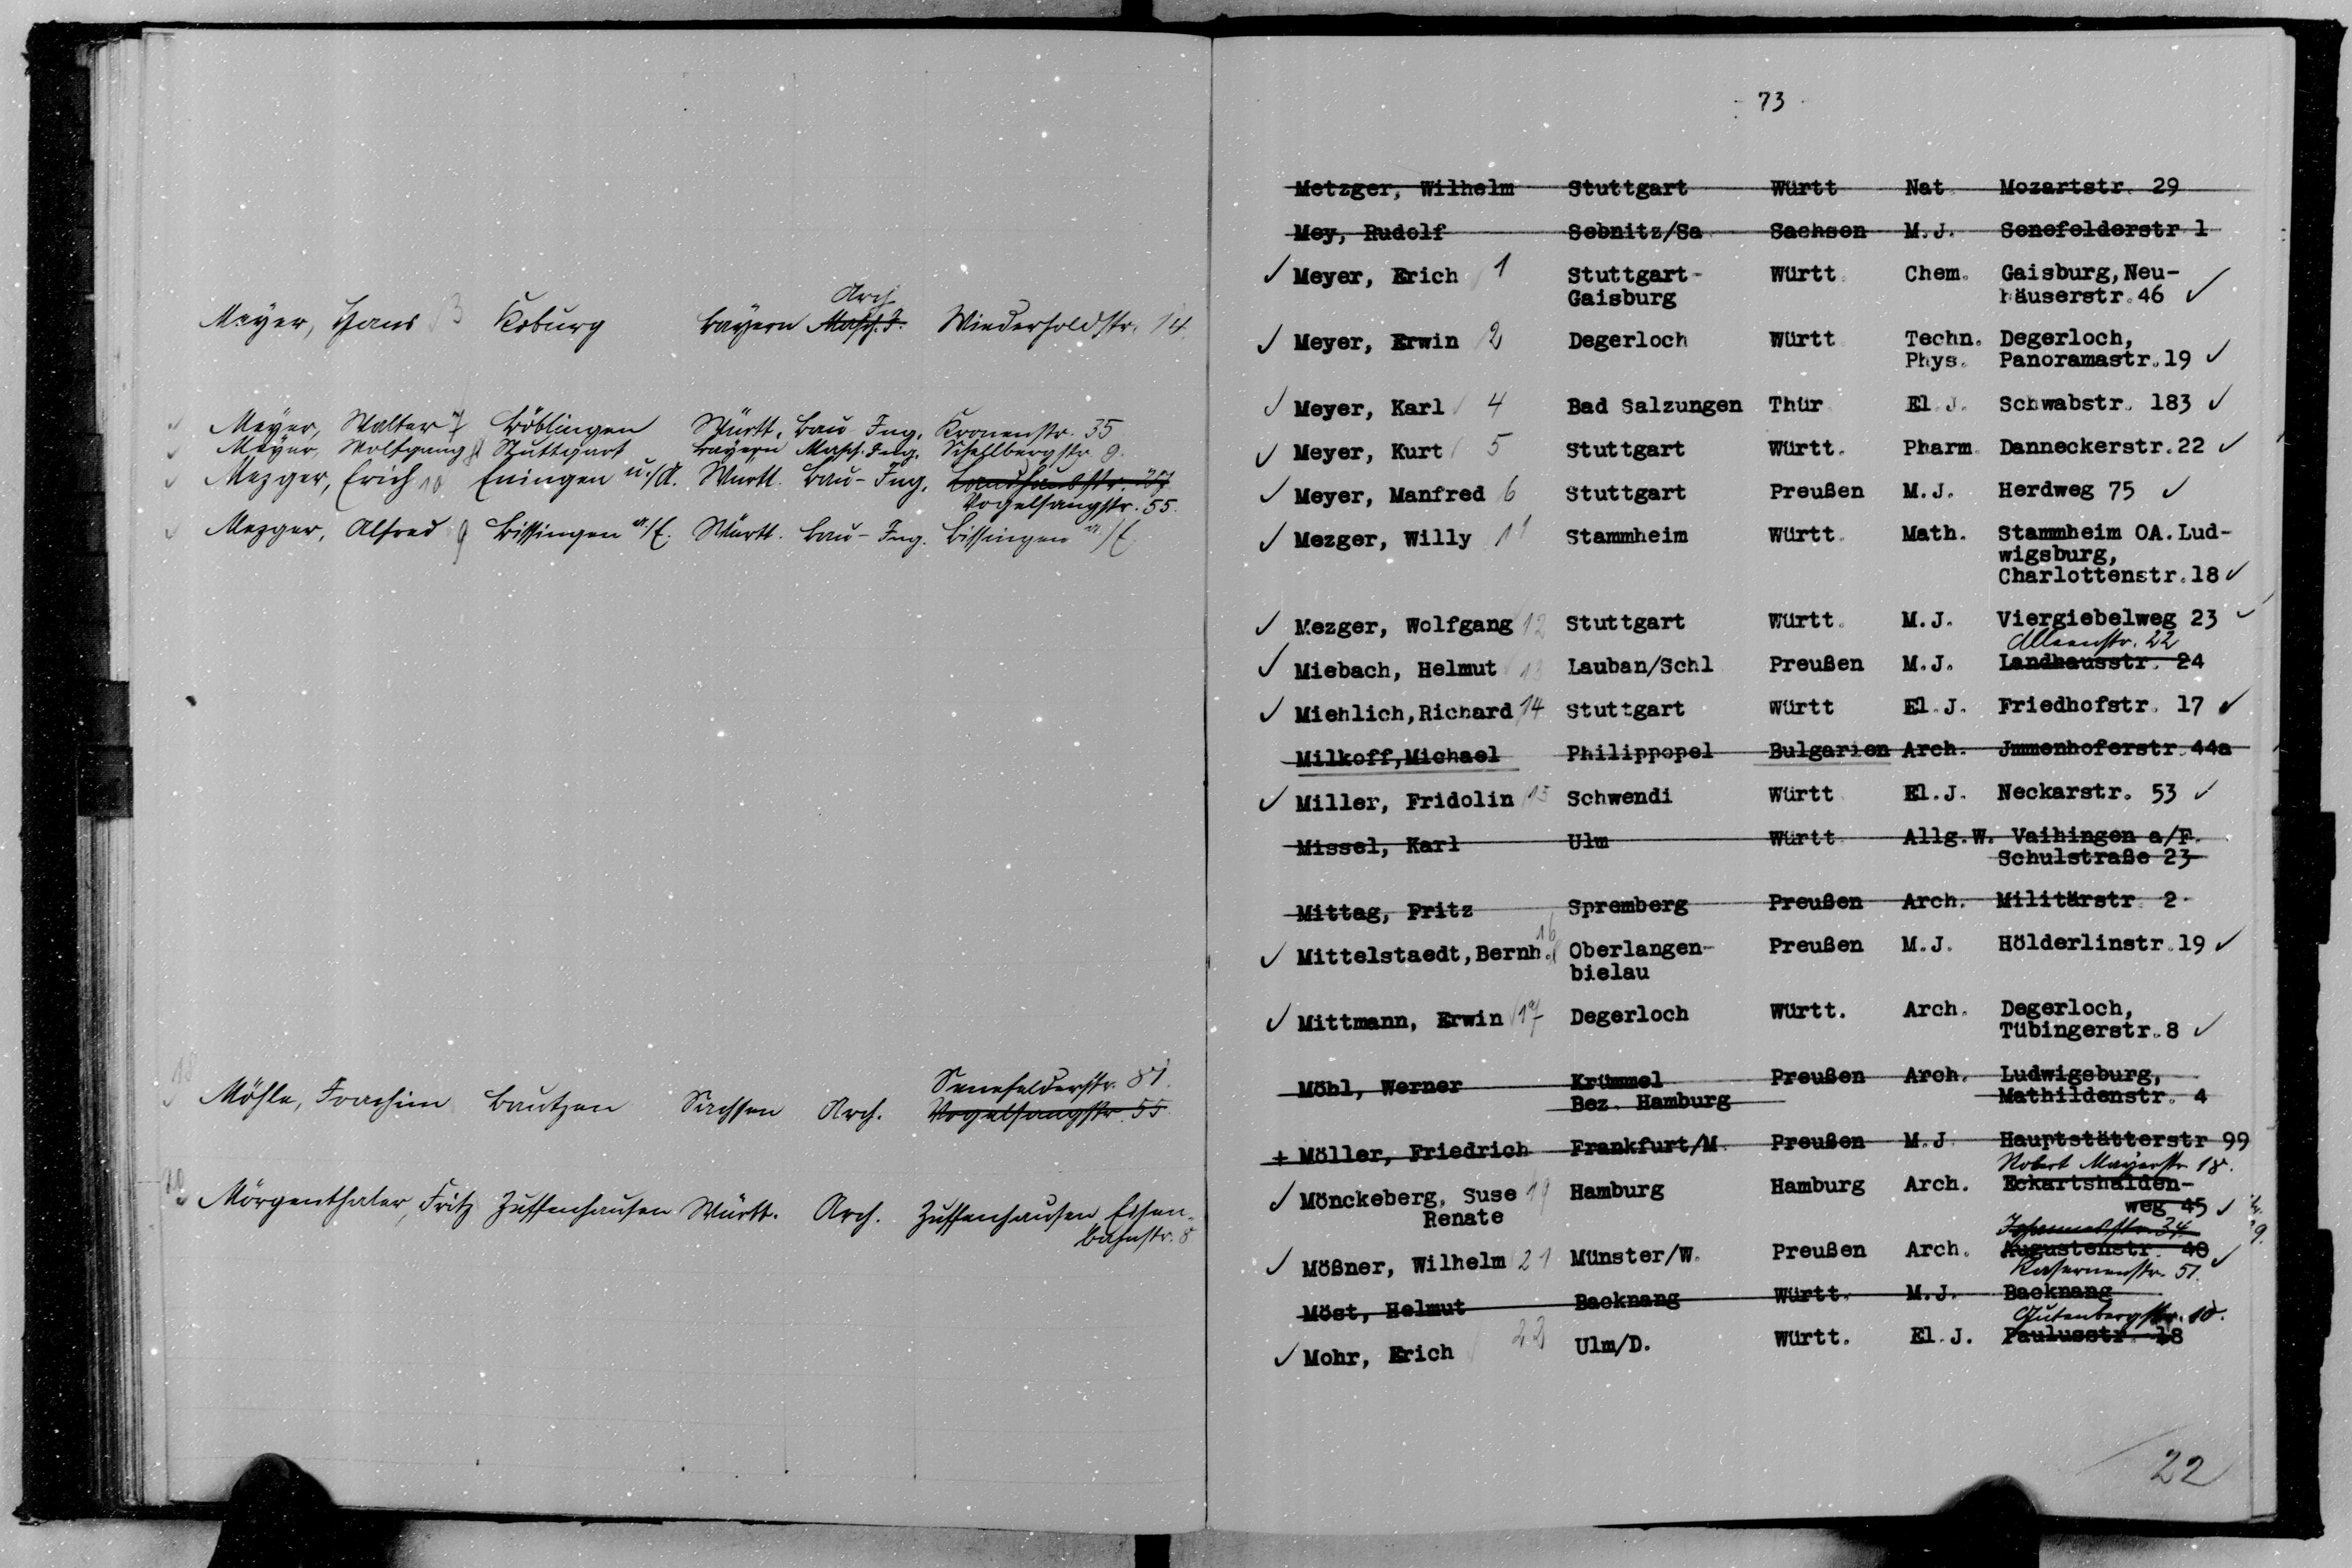 Arch
Meyer, Hans 3 Koburg Bayern Masch. I. Wiederholdstr. 14.
Meyer, Walter 7 Böblingen Württ. Bau-Ing. Kronenstr. 35
Meyer, Wolfgang 8 Stuttgart Bayern Masch. Ing. Schellbergstr. 9.
Mezger, Erich 10 Eningen u./A. Württ. Bau-Ing.
Vogelsangstr. 55.
Mezger, Alfred 9 Bissingen a./E. Württ. Bau-Ing. Bissingen a./E.
18
Senefelderstr. 81.
Möhle, Joachim Bautzen Sachsen Arch. Vogelsangstr. 55
20
Mörgenthaler, Fritz Zuffenhausen Württ. Arch. Zuffenhausen Eisen-
bahnstr. 8
73
Metzger, Wilhelm Stuttgart Württ Nat Mozartstr. 29
Mey, Rudolf Sebnitz/Sa Sachsen M.J. Senefelderstr 1
✓ Meyer, Erich 1 Stuttgart- Württ. Chem. Gaisburg, Neu-
Gaisburg häuserstr. 46 ✓
✓ Meyer, Erwin 2 Degerloch Württ Techn. Degerloch,
Phys. Panoramastr. 19 ✓
✓ Meyer, Karl 4 Bad Salzungen Thür El.J. Schwabstr. 183 ✓
✓ Meyer, Kurt 5 Stuttgart Württ. Pharm. Danneckerstr. 22 ✓
✓ Meyer, Manfred 6 Stuttgart Preußen M.J. Herdweg 75 ✓
✓ Mezger, Willy 11 Stammheim Württ. Math. Stammheim OA. Lud-
wigsburg,
Charlottenstr. 18 ✓
✓ Mezger, Wolfgang 12 Stuttgart Württ. M.J. Viergiebelweg 23 ✓
Alleenstr. 22
✓ Miebach, Helmut 13 Lauban/Schl Preußen M.J. Landhausstr. 24
✓ Miehlich, Richard 14 Stuttgart Württ El.J. Friedhofstr. 17 ✓
Milkoff, Michael Philippopel Bulgarien Arch. Jmmenhoferstr. 44a
✓ Miller, Fridolin 15 Schwendi Württ El.J. Neckarstr. 53 ✓
Missel, Karl Ulm Württ Allg.W. Vaihingen a/F.
Schulstraße 23
Mittag, Fritz Spremberg Preußen Arch. Militärstr. 2
16
✓ Mittelstaedt, Bernh. Oberlangen- Preußen M.J. Hölderlinstr. 19 ✓
bielau
✓ Mittmann, Erwin 17 Degerloch Württ. Arch. Degerloch,
Tübingerstr. 8 ✓
Möhl, Werner Krümmel Preußen Arch. Ludwigsburg,
Bez. Hamburg Mathildenstr. 4
+ Möller, Friedrich Frankfurt/M. Preußen M.J Hauptstätterstr 99
Robert Mayerstr. 18.
✓ Mönckeberg, Suse 19 Hamburg Hamburg Arch. Eckartshalden-
Renate weg 45 ✓
Johannesstr. 34
✓ Mößner, Wilhelm 21 Münster/W. Preußen Arch. Augustenstr. 40 ✓
Kasernenstr. 51.
Möst, Helmut Backnang Württ. M.J. Backnang
Gutenbergstr. 10.
✓ Mohr, Erich 22 Ulm/D. Württ. El.J. Paulusstr. 18
22